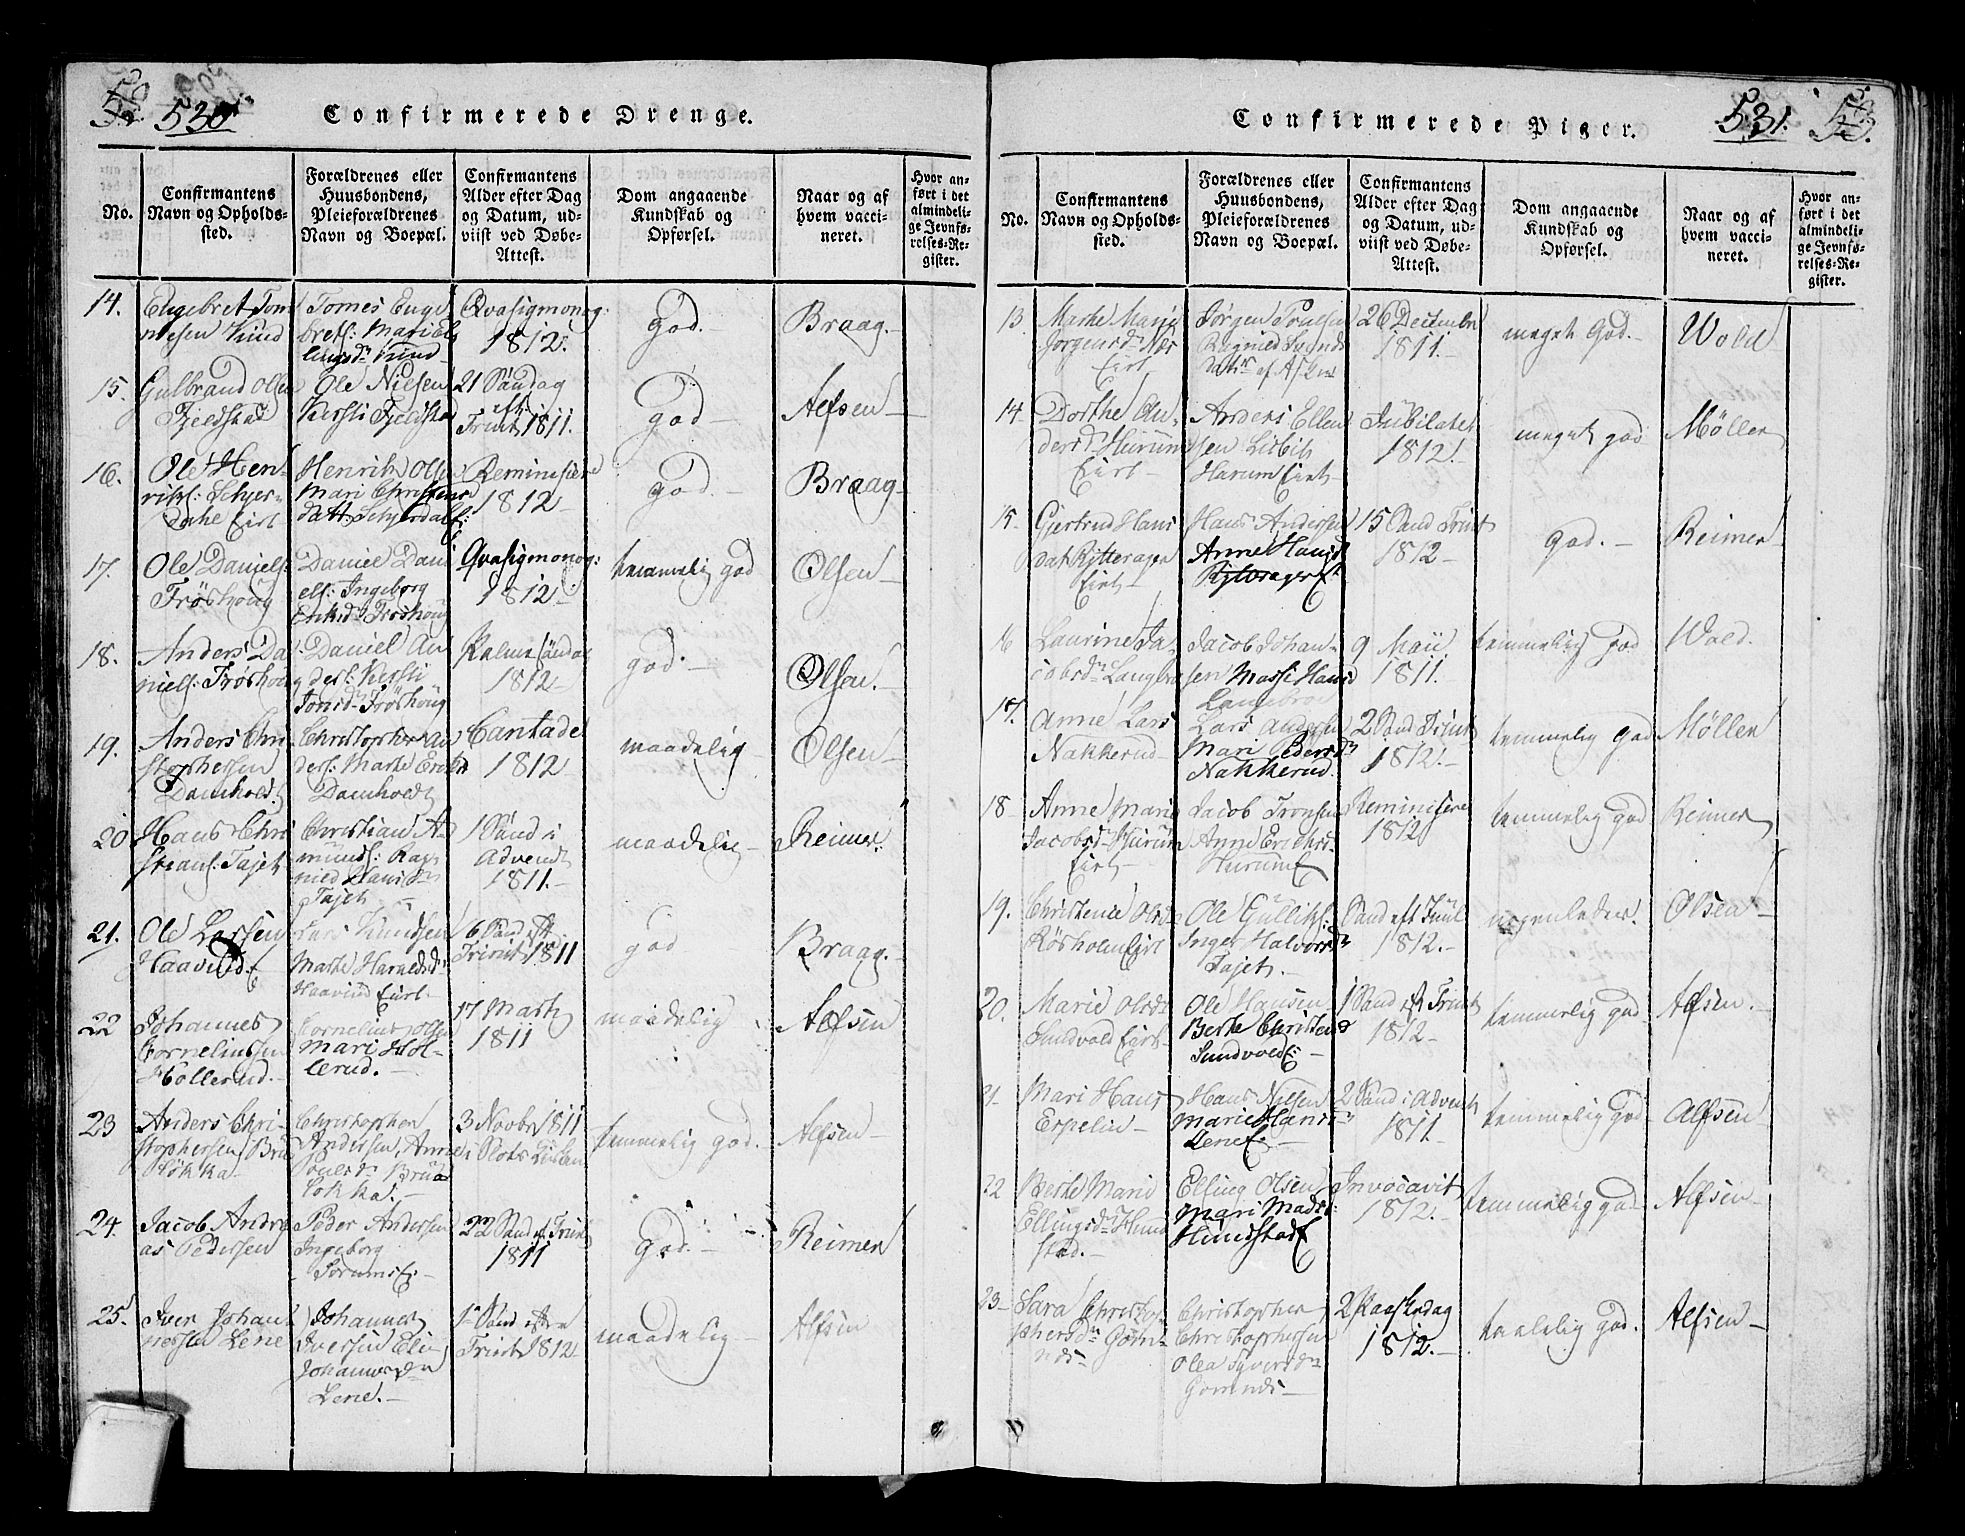 530
Confirmerede Drenge.
No.
Confirmantens
Navn og Opholds-
sted.
Forældrenes eller
Huusbondens,
Pleieforældrenes
Navn og Boepæl.
Confirmantens
Alder efter Dag
og Datum, ud-
viist ved Døbe-
Attest.
Dom angaaende
Kundskab og
Opførsel.
Naar og af
hvem vacci-
neret.
Hvor an-
ført i det
almindeli-
ge Jevnfø-
relses-Re-
gister.
14.
Engebret Tom
mesen Kind
Tomes Enge
brets: Mari El
lingsdr Kind
Qvasigmonog:
1812.
god.
Braag.
15.
Gulbrand Olsen
Fjeldstad
Ole Nielsen
Kersti Fjeldstad
21 Søndag
eft.
Trinit 1811.
god
Alfsen
16.
Ole Hen-
richs: Schjer-
dahl Eiet
Henrich Olsen
Mari Christens
datt. Schjerdal E:
Reminiscere
1812
god.
Braag
17.
Ole Daniels:
Frøshoug
Daniel Dani
els: Ingeborg
Erichsd Frøshoug
Qvasigmonog:
1812
temmelig god
Olsen
18.
Anders Da
niels: Frøshoug
Daniel An
ders: Kersti
Jonsd Frøshoug
Palme Søndag
1812
god.
Olsen.
19.
Anders Chri
stophersen
Damholdt
Christopher An
ders: Marte Erichsd
Damholdt
Cantade
1812
maadelig
Olsen
20
Hans Chri
stians: Tajet
Christian A
munds: Rag
nild Hansdr
Tajet
1 Sønd i
Advent
1811.
maadelig
Reimer.
21.
Ole Larsen
Haavind E
Lars Knudsen
Marthe Haraldsdr
Haavind Eiet.
16 Sønd eft.
Trinit 1811
god
Braag.
22
Johannes
Corneliussen
Hollerud.
Cornelius Olsen
Mari Hol-
lerud.
17 Marts
1811
maadelig
Alfsen
23
Anders Chri-
stophersen Bru
løkka
Christopher
Andersen, Anne
Bru
løkka.
3 Novbr 1811
i Slots Kirken
temmelig god.
Alfsen
24.
Jacob Andre
as Pedersen
Peder Andersen
Ingeborg
Sørums E:
22 Sønd ef. Trinit
1811
God.
Reimer
25.
Iver Johan
nessen Lene
Johannes
Iversen Eli
Johannesdr
Lene.
1 Sønd efter
Trinit 1812
maadelig
Alfsen
Confirmerede Piger.
531.
No.
Confirmantens
Navn og Opholds-
sted.
Forældrenes eller
Huusbondens,
Pleieforældrenes
Navn og Boepæl.
Confirmantens
Alder efter Dag
og Datum, ud-
viist ved Døbe-
Attest.
Dom angaaende
Kundskab og
Opførsel.
Naar og af
hvem vacci-
neret.
Hvor an-
ført i det
almindeli-
ge Jevnfø-
relses-Re-
gister.
13.
Marthe Marie
Jørgensdr
Eiet
Jørgen
26 December
1811.
meget God.
Wold
14
Dorthe An-
dersd Hurum
Eiet
Anders Ellen
sen Lisbeth
Harum Eiet
Jubilate
1812.
meget god
Møller
15
Gjertrud Hans
dat Rytterager
Eiet
Hans Andersen
Anne Hansd
Rytterager Et
15 Sønd Trinit
1812
God.
Reimer
16
Laurine Ja-
cobsdr Langbra
Jacob Johan-
sen Massi Hansd
Langbra
9 Maii
1811.
temmelig god
Wold.
17.
Anne Lars
Nakkerud
Lars Andersen
Mari Pedersdr
Nakkerud.
2 Sønd Trinit
1812.
temmelig god
Møller
18
Anne Marie
Jacobsdr Hurum
Eiet
Jacob Tronsen
Anne Erichsd
Hurum E
Reminiscere
1812
temmelig god
Reimer
19.
Christence Olsdr
Røsholm Eiet
Ole Gulliks:
Inger Halvorsdr
Tajet.
Sønd eft Juul
1812.
nogenledes.
Olsen
20.
Marie Olsdr
Sundvold Eiet
Ole Hansen
Berte Christensd
Sundvold E:
1 Sønd eft Trinit
1812
temmelig god
Alfsen.
21
Mari Hans
Espelin
Hans Nilsen
Marie Hansdr
Lene E.
2 Sønd i Advent
1811.
temmelig god
Alfsen
22
Berte Marie
Ellingsdr Hund
stad.
Elling Olsen
Mari Mads:
Hundstad E
Invocavit
1812.
temmelig god
Alfsen
23
Sara Christo
phersdr Gom-
nds
Christopher
Christophersen
Olea Syversdr
Gomnds
2 Paaskedag
1812.
taalelig god.
Alfsen